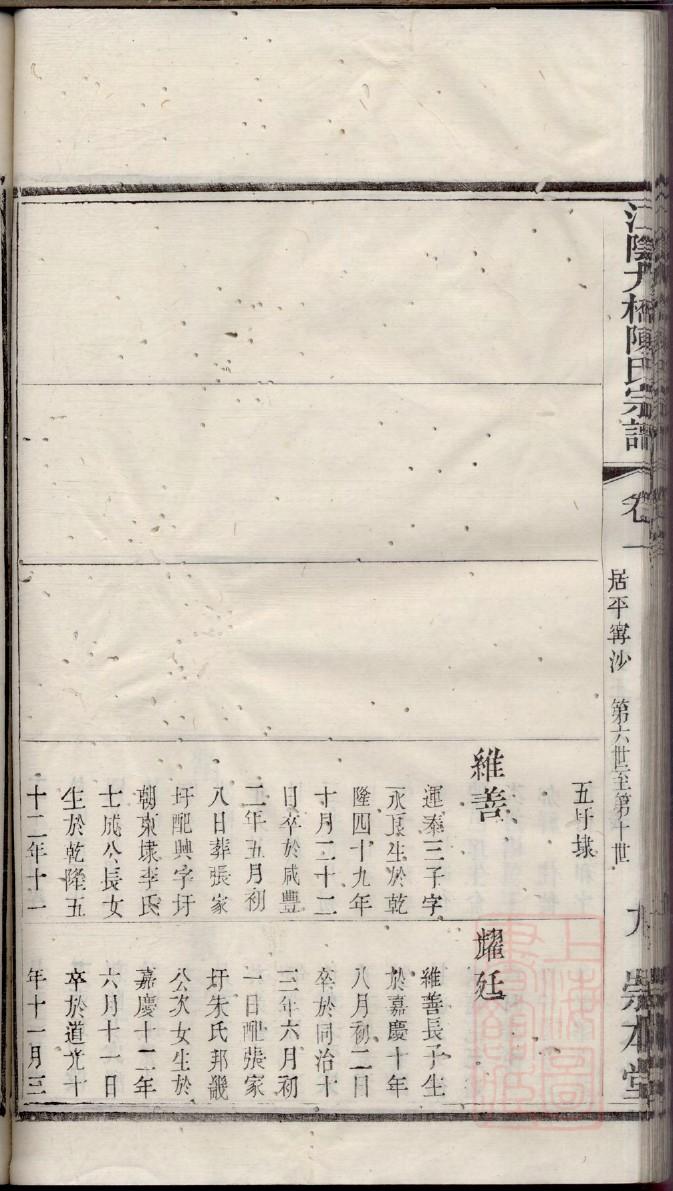 江陰九橋陳氏宗譜
卷一
居平寗沙
第六世至第十世
九
崇本堂
五圩埭
維善
運泰三子字
永良生於乾
隆四十九年
十月二十二
日卒於咸豐
二年五月初
八日葬張家
圩配興字圩
朝東埭李氏
士成公長女
生於乾隆五
十二年十一
耀廷
維善長子生
於嘉慶十年
八月初二日
卒於同治十
三年六月初
一日配張家
圩朱氏邦畿
公次女生於
嘉慶十二年
六月十一日
卒於道光十
年十一月三
上海圖書館藏